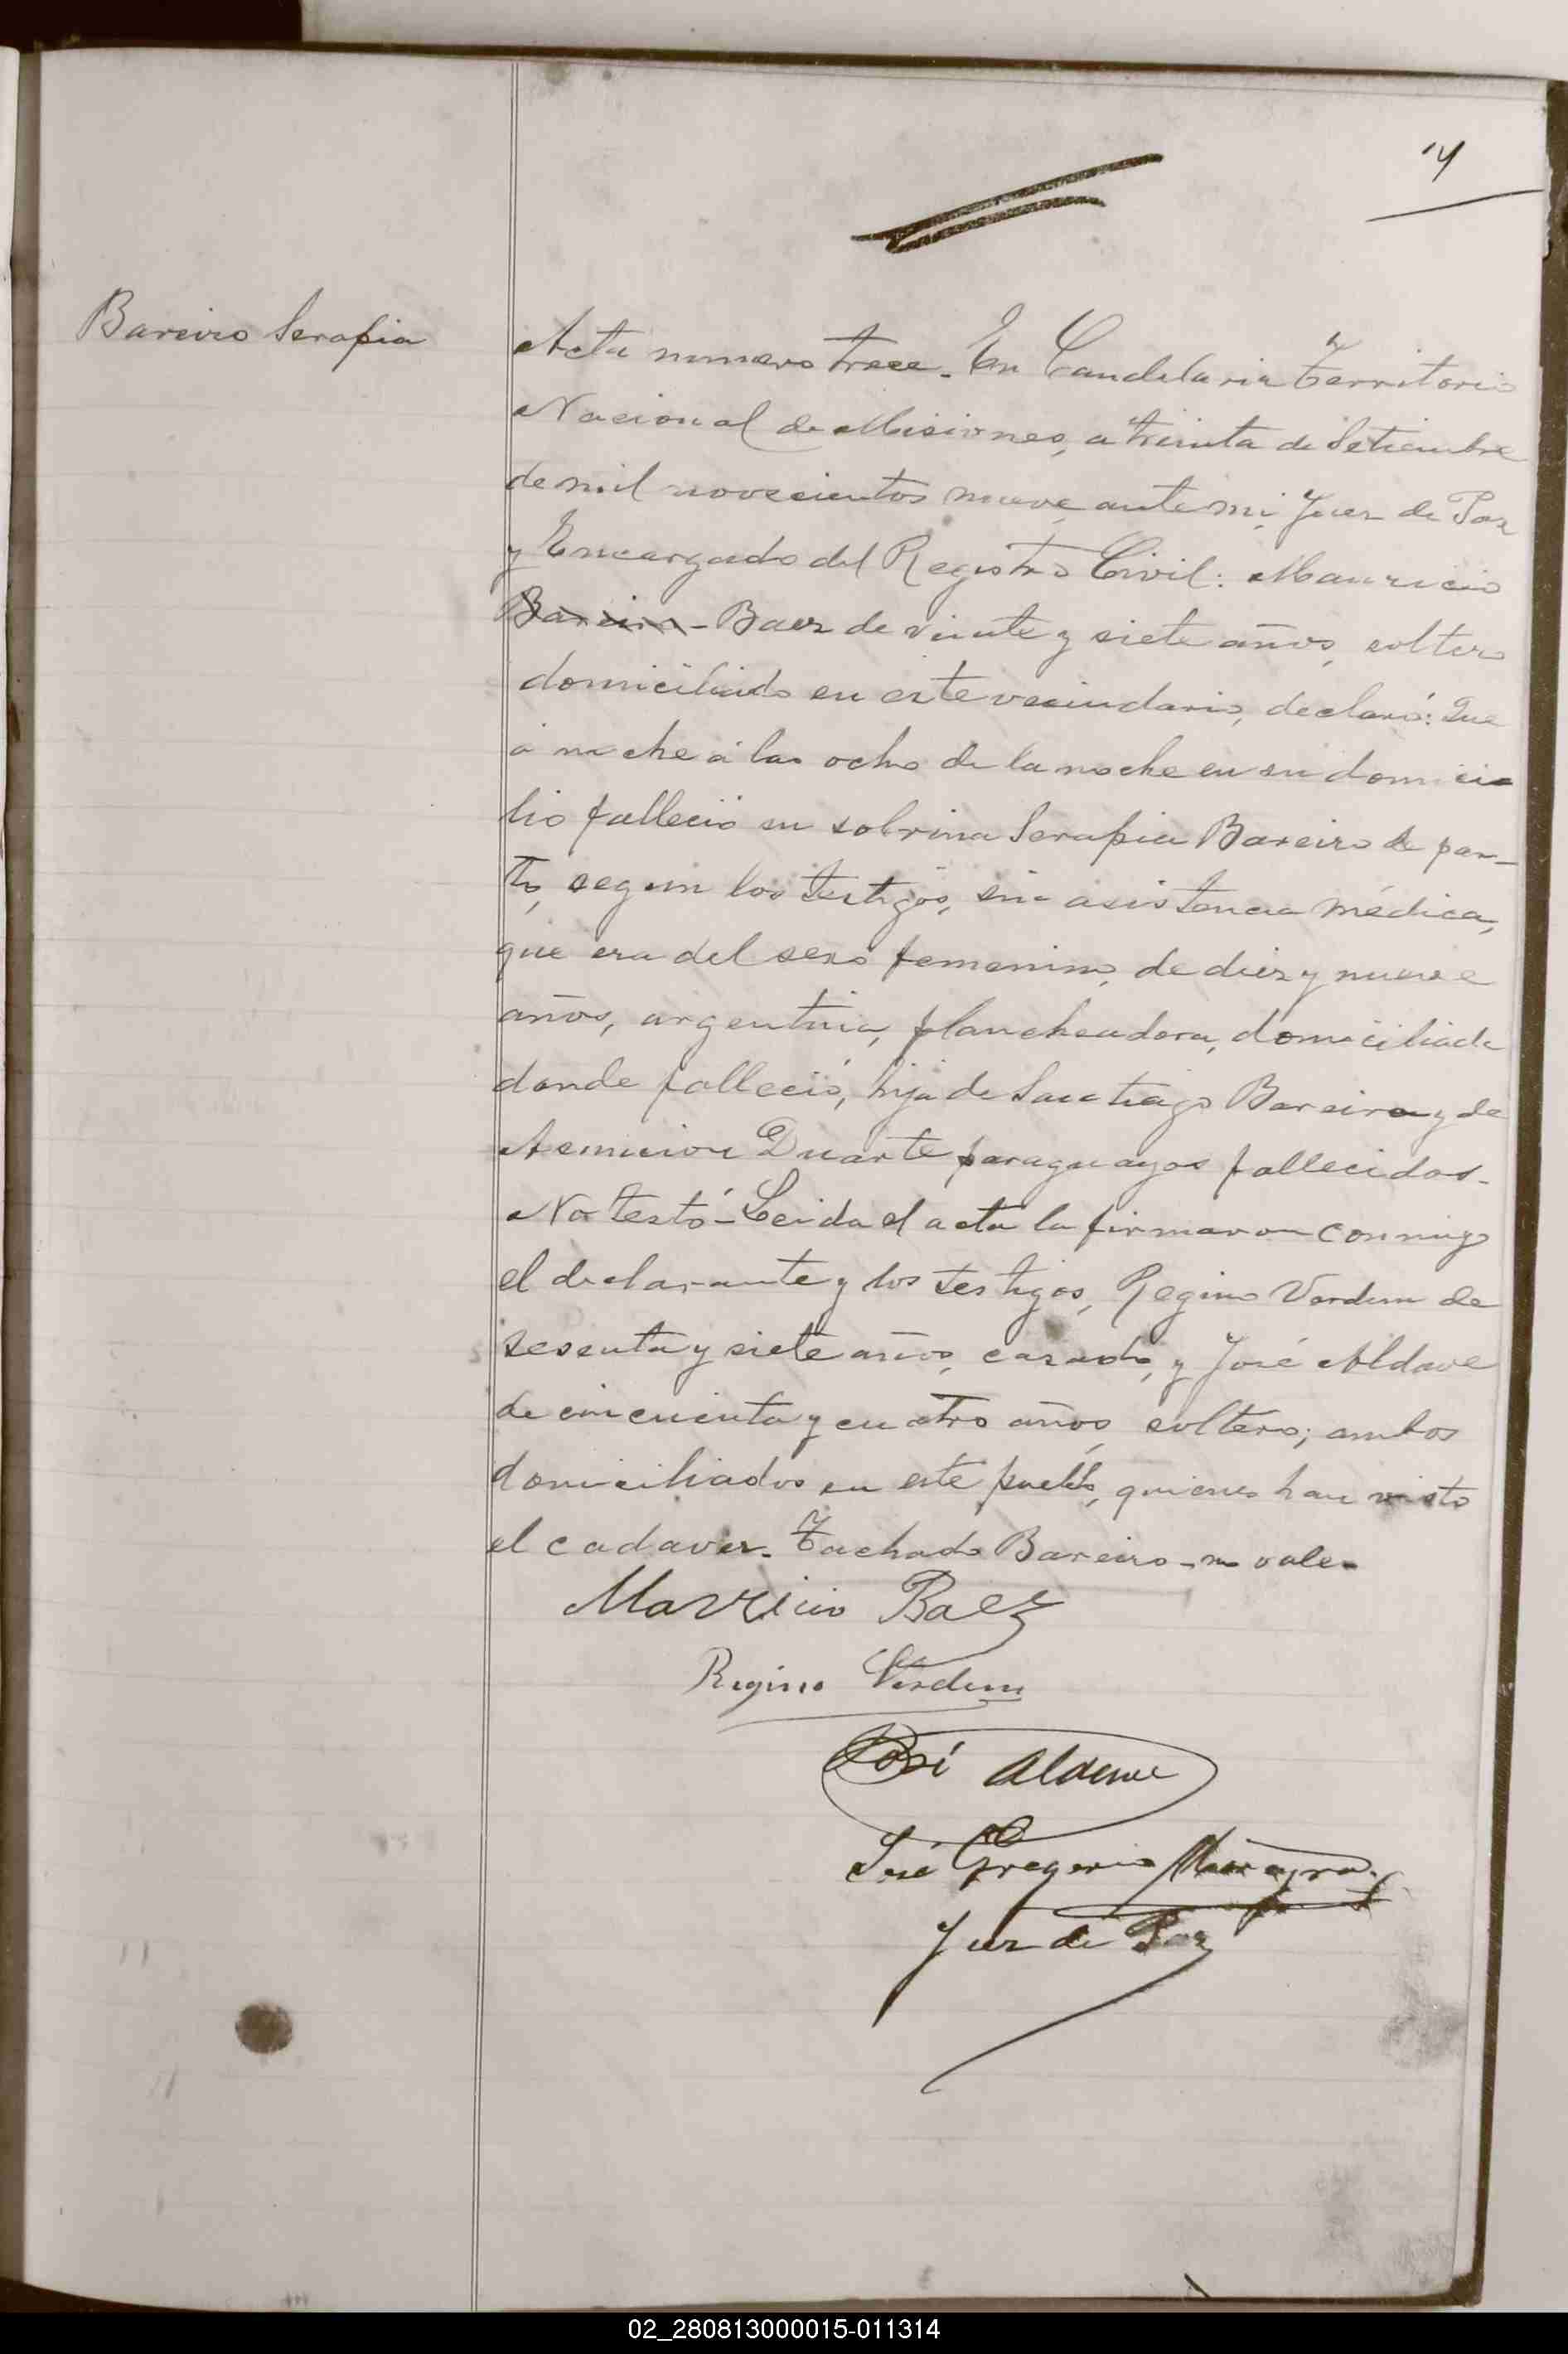 14
Bareiro Serapia
Acta numero trece. En Candelaria Territorio
Nacional de Misiones, a treinta de Setiembre
de mil novecientos nueve, ante mi, Juez de Paz
y Encargado del Registro Civil: Mauricio
Bareiro - Baez de veinte y siete años, soltero
domiciliado en este vecindario, declaró: Que
á noche á las ocho de la noche en su domici
lio falleció su sobrina Serapia Bareiro de par-
to, segun los testigos, sin asistencia médica,
que era del sexo femenino, de diez y nueve
años, argentina, plancheadora, domiciliada
donde falleció, hija de Santiago Bareiro y de
Asuncion Duarte paraguayos fallecidos.
No testó - Leida el acta la firmaron conmigo
el declarante y los testigos, Regino Verdun de
sesenta y siete años, casado, y José Aldave
de cincuenta y cuatro años, soltero; ambos
domiciliados en este pueblo, quienes han visto
el cadaver. Tachado Bareiro - no vale.
Mauricio Baez
Regino Verdun
José Aldave
José Gregorio
Juez de Paz
02_280813000015-011314